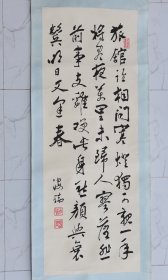 旅館誰相問寒燈獨可親一年
將盡夜萬里未歸人寥落悲
前事支離笑此身愁顏與衰
鬢明日又逢春